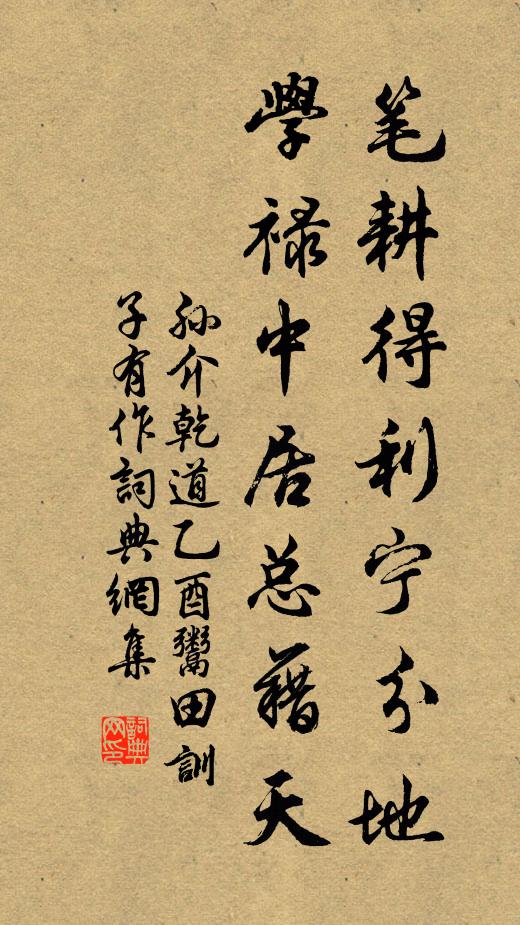 笔耕得利宁分地
學禄中居总藉天
孙介乾道乙酉鬻田訓
子有作詞典網集
詞典网印